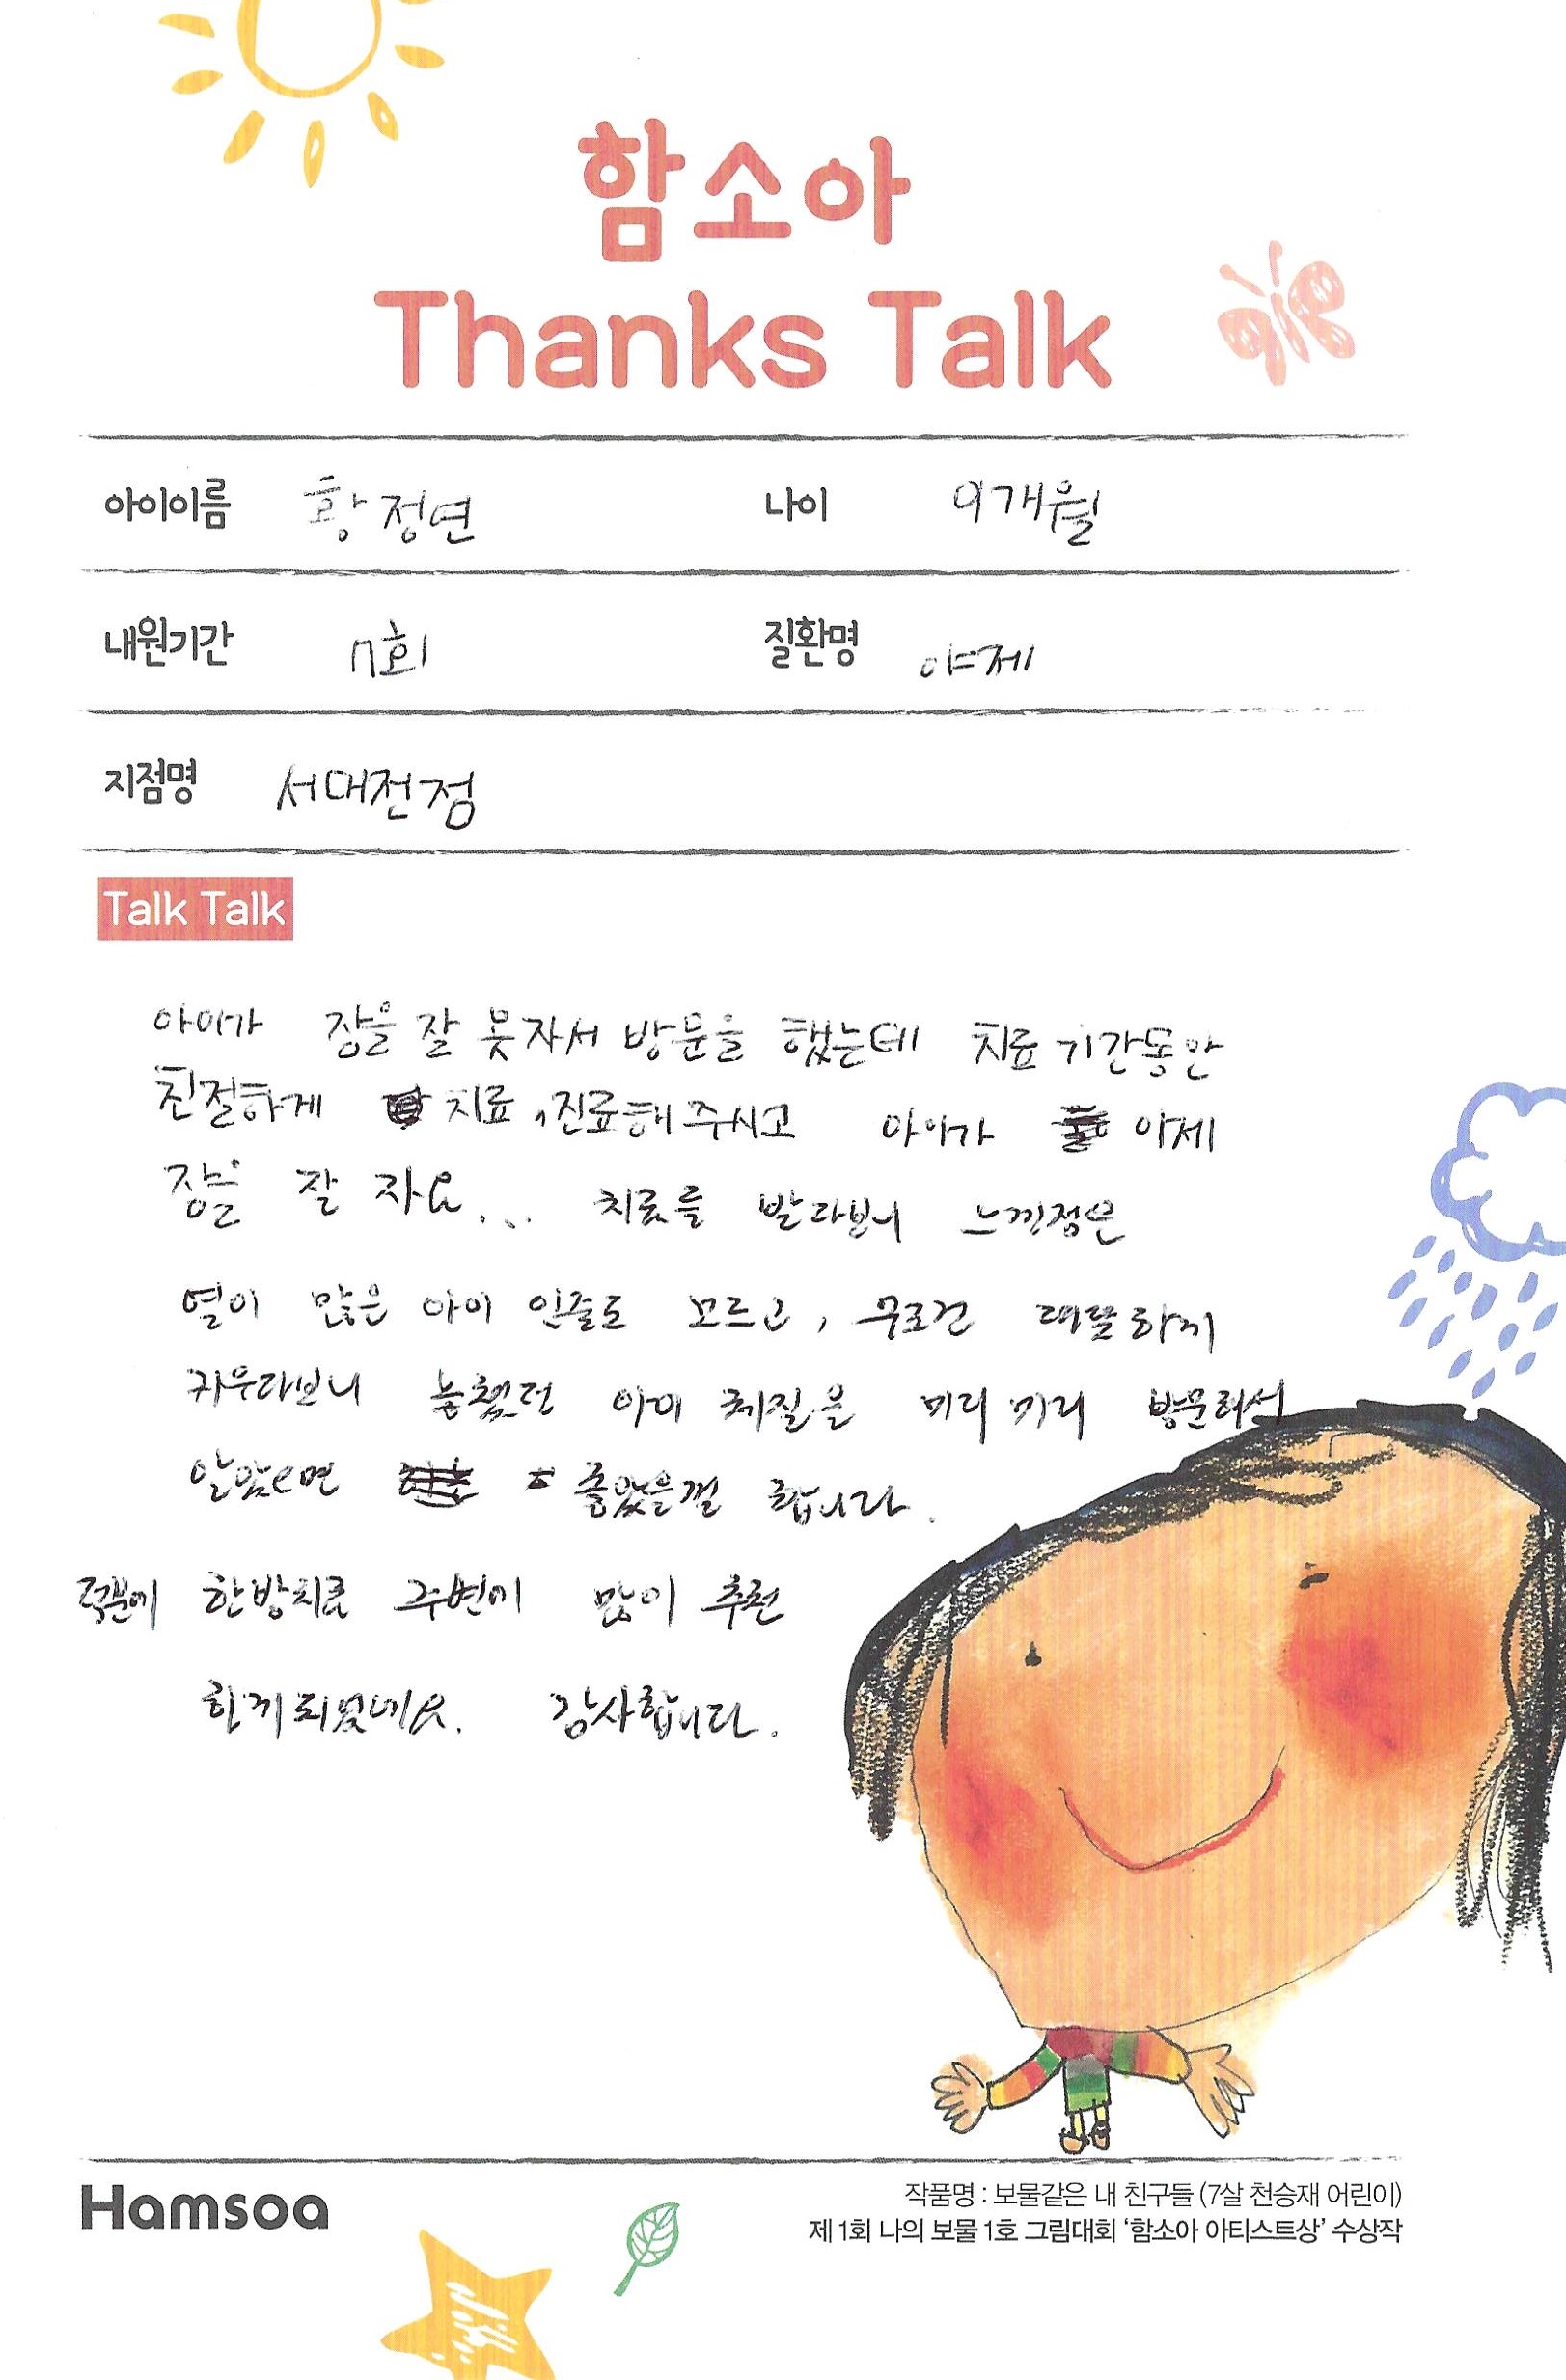 함소아
Thanks Talk
아이이름 황정연 나이 9개월
내원기간 7회 질환명 야제
지점명 서대전점
Talk Talk
아이가 잠을 잘 못자서 방문을 했는데 치료기간동안
친절하게 치료, 진료해주시고 아이가 이제
잠을 잘 자요... 치료를 받다보니 느낀점은
열이 많은 아이 인줄도 모르고, 무조건 대발하게
키우다보니 놓쳤던 아이 체질을 미리미리 방문해서
알았으면 좋았을걸 합니다.
덕분에 한방치료 주변에 많이 추천
하게되었네요. 감사합니다.
Hamsoa
작품명 : 보물같은 내 친구들 (7살 천승재 어린이)
제 1회 나의 보물 1호 그림대회 ‘함소아 아티스트상’ 수상작